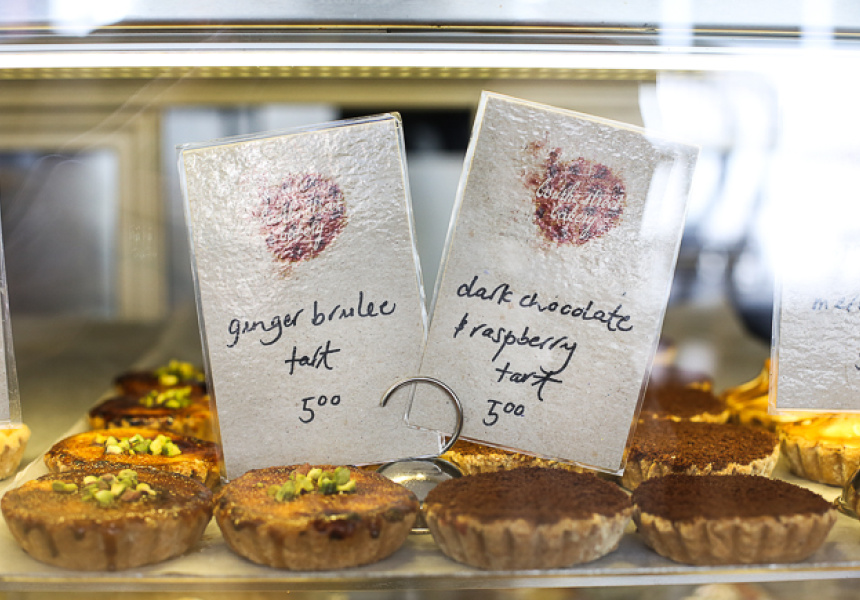 ginger brulee
tart
5.00
dark chocolate
& raspberry
tart
5.00